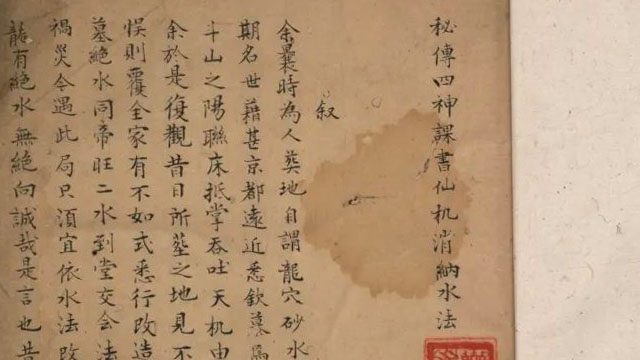 秘傳四神課書仙机消納水法
叙
余曩時為人葬地自謂龍穴砂水
期名世藉甚京都遠近悉欽慕焉
斗山之陽聯床抵掌吞吐天机由
余於是復觀昔日所塟之地見不
悮則覆全家有不如式悉行改造
墓絶水同帝旺二水到堂交会法
禍災令遇此局只湏宜依水法改
龍有絶水無絶向誠哉是言也昔